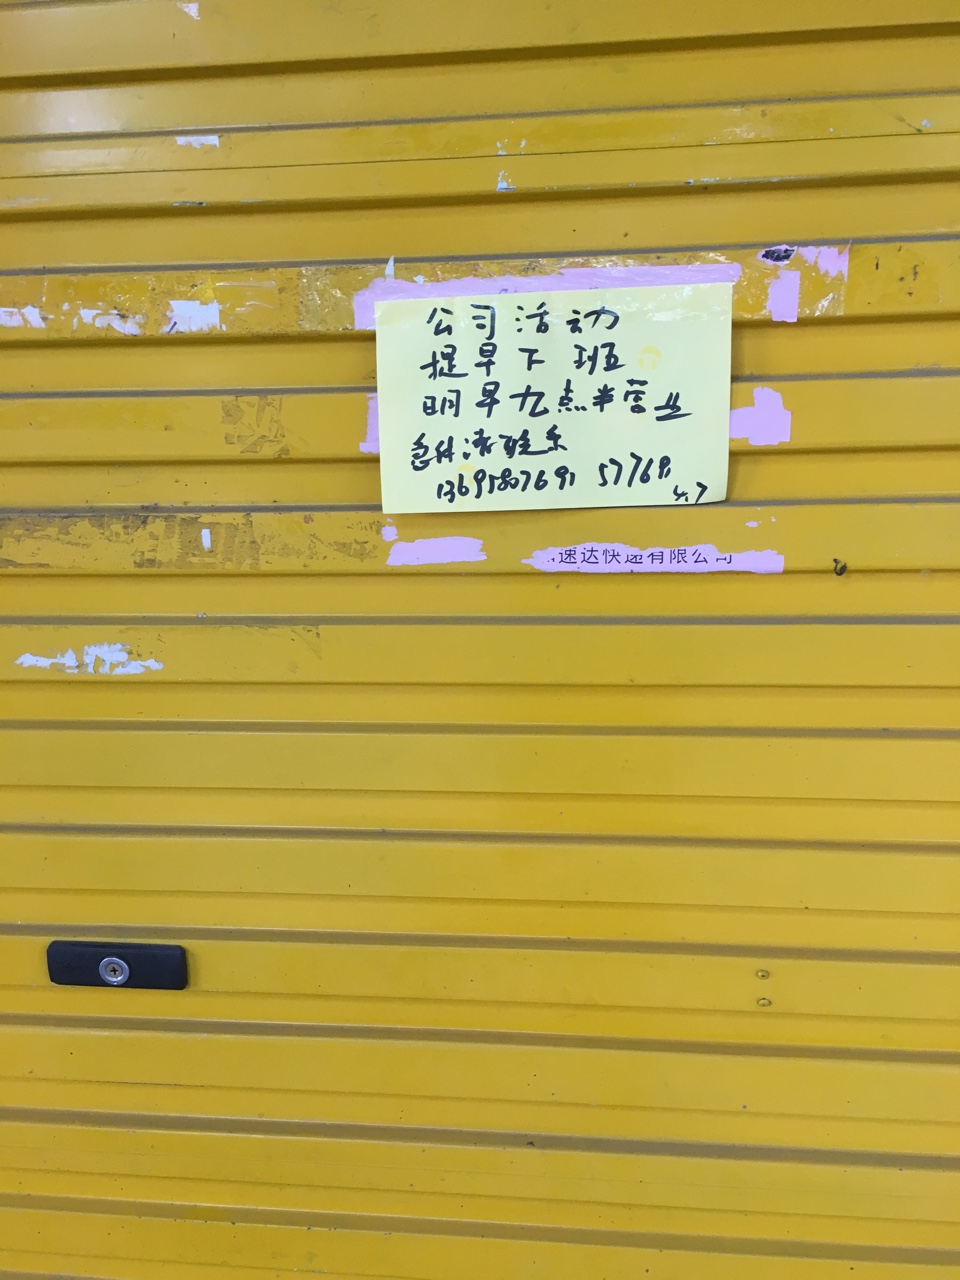 公司活动
提早下班
明早九点半营业
急件请联系
13695807691 57769
4.7
速达快递有限公司